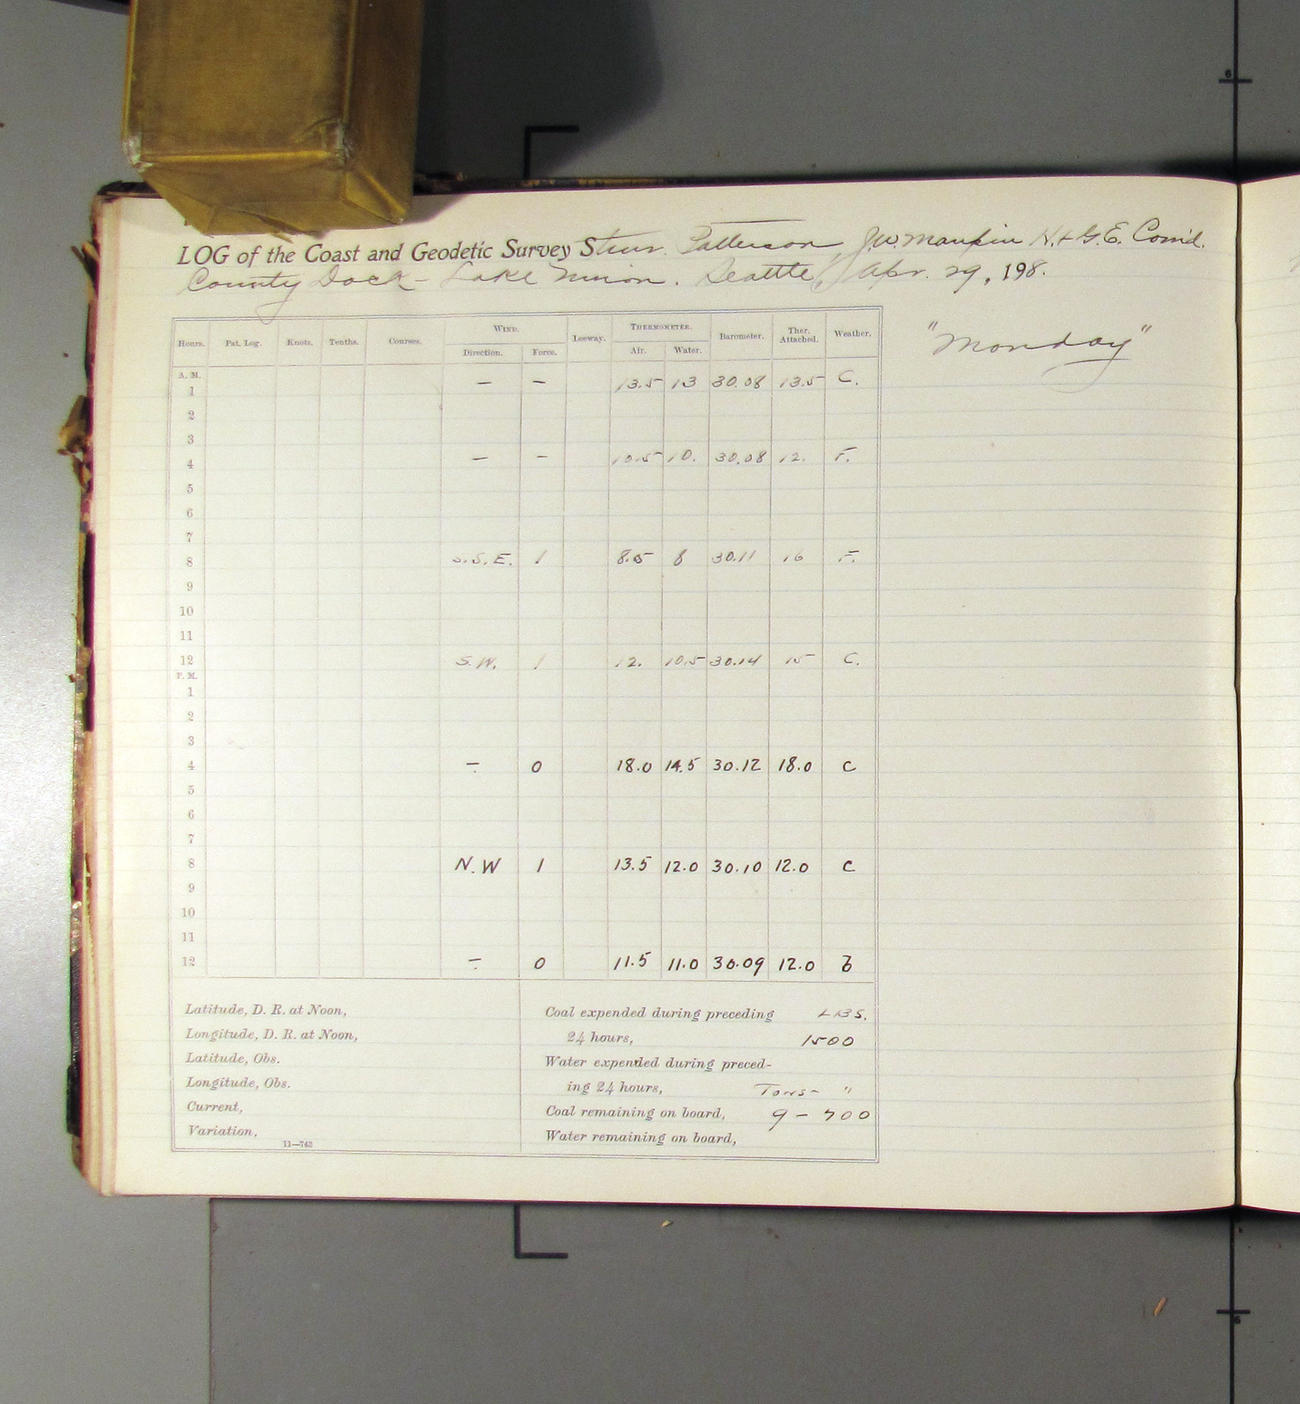 LOG of the Coast and Geodetic Survey Stmr. Patterson, J.W. Maupin H. & G. E. Com'd.
County Dock - Lake Union. Seattle, Apr. 29, 1918.
"Monday"
Hours. Pat. Log. Knots. Tenths. Courses. WIND. Leeway. THERMOMETER. Barometer. Ther. Attached. Weather.
Direction. Force. Air. Water.
A. M.
1 — — 13.5 13 30.08 13.5 C.
2
3
4 — — 10.5 10. 30.08 12. F.
5
6
7
8 S.S.E. 1 8.5 8 30.11 16 F.
9
10
11
12 S.W. 1 12. 10.5 30.14 15 C.
P. M.
1
2
3
4 — 0 18.0 14.5 30.12 18.0 C
5
6
7
8 N.W 1 13.5 12.0 30.10 12.0 C
9
10
11
12 — 0 11.5 11.0 30.09 12.0 b
Latitude, D. R. at Noon,
Longitude, D. R. at Noon,
Latitude, Obs.
Longitude, Obs.
Current,
Variation,
11—743
Coal expended during preceding LBS.
24 hours, 1500
Water expended during preced-
ing 24 hours, Tons - "
Coal remaining on board, 9 - 700
Water remaining on board,
6
6